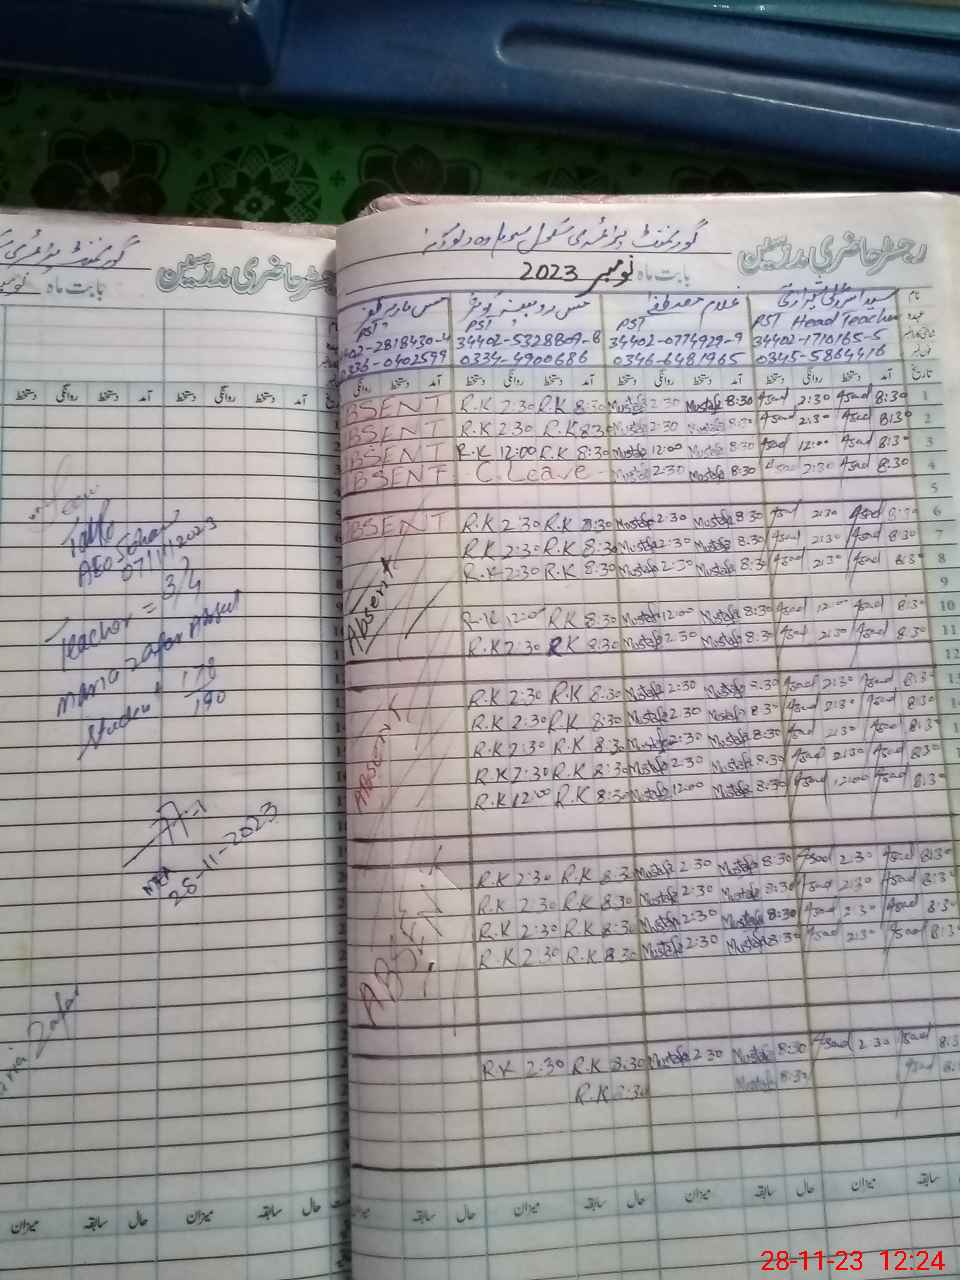 رجسٹر حاضری مدرسین
گورنمنٹ پرائمری سکول
بابت ماہ نومبر 2023
نام
PST Head Teacher
PST
PST
PST
34402-1710165-5
34402-0774929-9
34402-5328809-8
402-2818430-4
0345-5864416
0346-6481965
0334-4900686
0336-0402599
تاریخ آمد دستخط روانگی دستخط آمد دستخط روانگی دستخط آمد دستخط روانگی دستخط آمد دستخط روانگی
BSENT R.K 2:30 R.K 8:30 Mustafa 2:30 Mustafa 8:30 Asad 2:30 Asad 8:30 1
BSENT R.K 2:30 R.K 8:30 Mustafa 2:30 Mustafa 8:30 Asad 2:30 Asad 8:30 2
BSENT R.K 12:00 R.K 8:30 Mustafa 12:00 Mustafa 8:30 Asad 12:00 Asad 8:30 3
BSENT C. Leave Mustafa 2:30 Mustafa 8:30 Asad 2:30 Asad 8:30 4
5
BSENT R.K 2:30 R.K 8:30 Mustafa 2:30 Mustafa 8:30 Asad 2:30 Asad 8:30 6
R.K 2:30 R.K 8:30 Mustafa 2:30 Mustafa 8:30 Asad 2:30 Asad 8:30 7
R.K 2:30 R.K 8:30 Mustafa 2:30 Mustafa 8:30 Asad 2:30 Asad 8:30 8
Absent 9
R.K 12:00 R.K 8:30 Mustafa 12:00 Mustafa 8:30 Asad 12:00 Asad 8:30 10
R.K 2:30 R.K 8:30 Mustafa 2:30 Mustafa 8:30 Asad 2:30 Asad 8:30 11
12
R.K 2:30 R.K 8:30 Mustafa 2:30 Mustafa 8:30 Asad 2:30 Asad 8:30
R.K 2:30 R.K 8:30 Mustafa 2:30 Mustafa 8:30 Asad 2:30 Asad 8:30
ABSENT R.K 2:30 R.K 8:30 Mustafa 2:30 Mustafa 8:30 Asad 2:30 Asad 8:30
R.K 2:30 R.K 8:30 Mustafa 2:30 Mustafa 8:30 Asad 2:30 Asad 8:30
R.K 12:00 R.K 8:30 Mustafa 12:00 Mustafa 8:30 Asad 12:00 Asad 8:30
R.K 2:30 R.K 8:30 Mustafa 2:30 Mustafa 8:30 Asad 2:30 Asad 8:30
R.K 2:30 R.K 8:30 Mustafa 2:30 Mustafa 8:30 Asad 2:30 Asad 8:30
ABSENT R.K 2:30 R.K 8:30 Mustafa 2:30 Mustafa 8:30 Asad 2:30 Asad 8:30
R.K 2:30 R.K 8:30 Mustafa 2:30 Mustafa 8:30 Asad 2:30 Asad 8:30
R.K 2:30 R.K 8:30 Mustafa 2:30 Mustafa 8:30 Asad 2:30 Asad 8:3
R.K 8:30 Mustafa 8:30 Asad
حال سابقہ میزان حال سابقہ میزان حال سابقہ
رجسٹر حاضری مدرسین
گورنمنٹ پرائمری
بابت ماہ
آمد دستخط روانگی دستخط آمد دستخط روانگی دستخط
AEO
07/11/2023
Teacher = 3/4
Zafar Absent
Student 178
190
MEA
28-11-2023
Zafar
حال سابقہ میزان حال سابقہ میزان
28-11-23 12:24